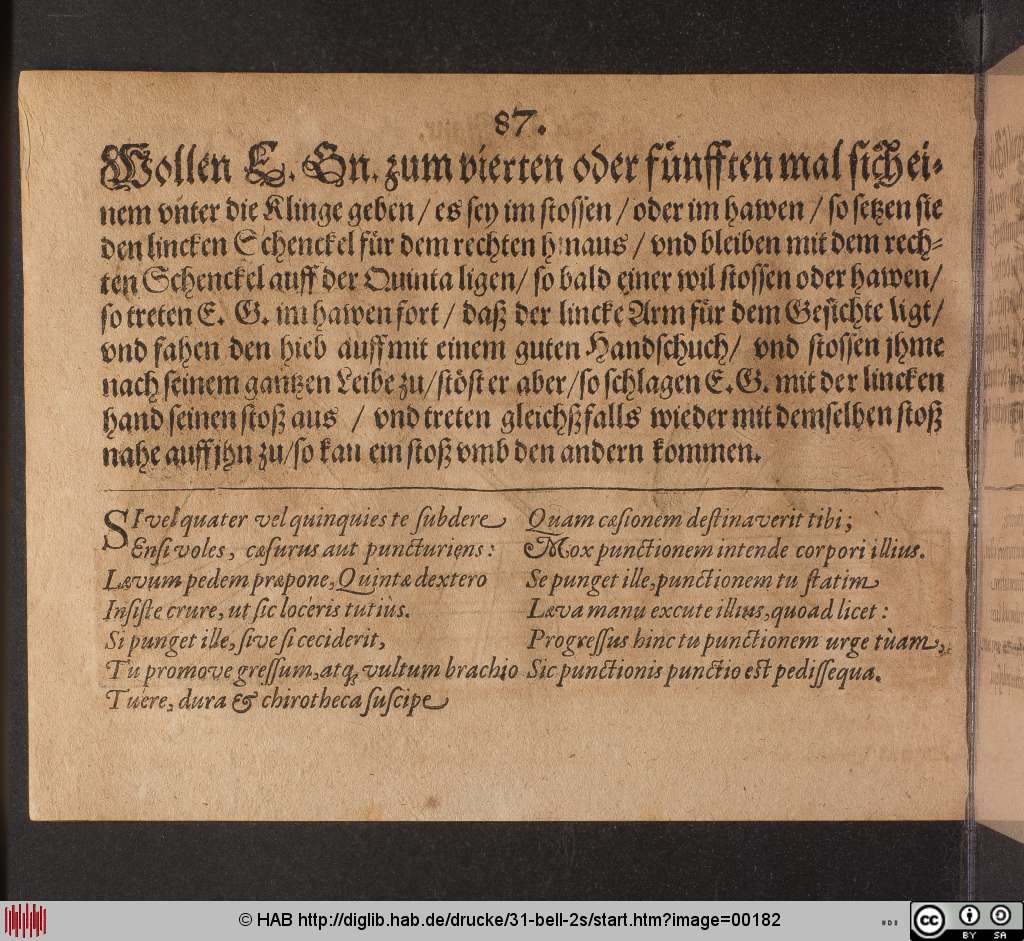 87.
Wollen E. Gn. zum vierten oder fünfften mal sich ei-
nem vnter die Klinge geben / es sey im stossen / oder im hawen / so setzen sie
den lincken Schenckel für dem rechten hinaus / vnd bleiben mit dem rech-
ten Schenckel auff der Quinta ligen / so bald einer wil stossen oder hawen /
so treten E. G. im hawen fort / daß der lincke Arm für dem Gesichte ligt /
vnd fahen den hieb auff mit einem guten Handschuch / vnd stossen jhme
nach seinem gantzen Leibe zu / stöst er aber / so schlagen E. G. mit der lincken
hand seinen stoß aus / vnd treten gleichßfalls wieder mit demselben stoß
nahe auff jhn zu / so kan ein stoß vmb den andern kommen.
SI vel quater vel quinquies te subdere
Ensi voles, cæsurus aut puncturiens:
Lævum pedem præpone, Quintæ dextero
Insiste crure, ut sic loceris tutiùs.
Si punget ille, sive si ceciderit,
Tu promove gressum, atq; vultum brachio
Tuere, dura & chirotheca suscipe
Quam cæsionem destinaverit tibi;
Mox punctionem intende corpori illius.
Se punget ille, punctionem tu statim
Læva manu excute illius, quoad licet:
Progressus hinc tu punctionem urge tùam,
Sic punctionis punctio est pedissequa.
© HAB http://diglib.hab.de/drucke/31-bell-2s/start.htm?image=00182
cc BY SA